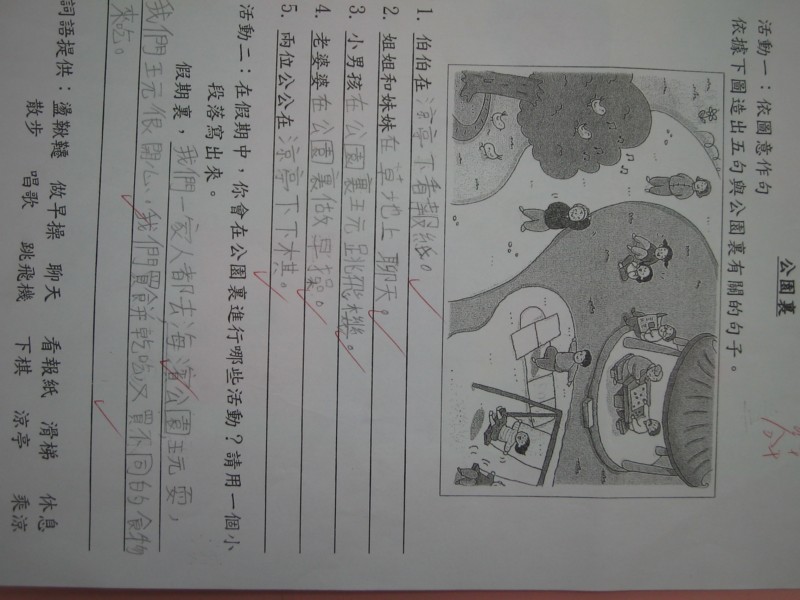 公園裏
活動一：依圖意作句
依據下圖造出五句與公園裏有關的句子。
1. 伯伯在涼亭下看報紙。
2. 姐姐和妹妹在草地上聊天。
3. 小男孩在公園裏玩跳飛機。
4. 老婆婆在公園裏做早操。
5. 兩位公公在涼亭下下木其。
活動二：在假期中，你會在公園裏進行哪些活動？請用一個小
段落寫出來。
假期裏，我們一家人都去海濱公園玩耍，
我們玩很開心，我們買餅乾吃又買不同的食物
來吃。
詞語提供：盪鞦韆 做早操 聊天 看報紙 滑梯 休息
散步 唱歌 跳飛機 下棋 涼亭 乘涼